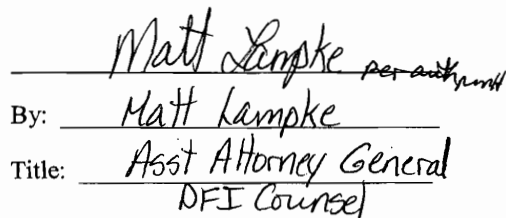 Matt Lampke per auth
By: Matt Lampke
Title: Asst Attorney General
DFI Counsel